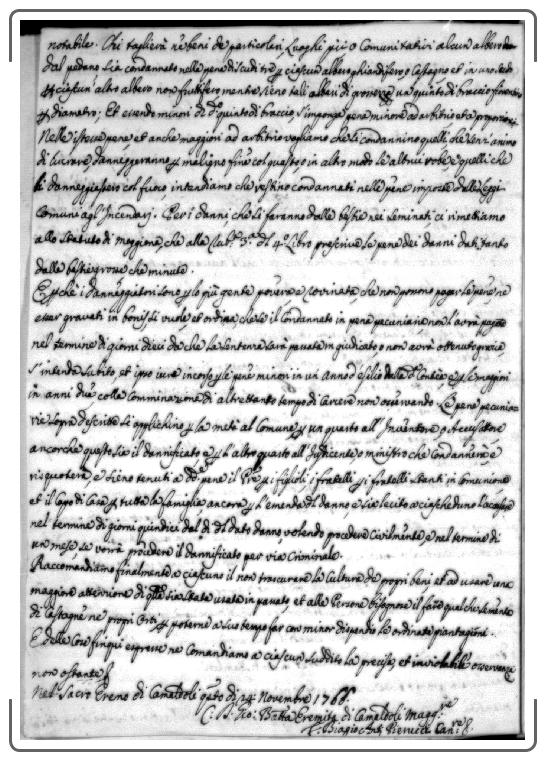 notabile. Chi taglierà ne beni de particolari, Luoghi pij o Comunitativi alcun albero
dal pedano sia condannato nelle pene di scudi tre p ciascun albero ghiandifero o Castagno et in uno scudo
p ciascun altro albero non fruttifero mentre sieno tali alberi di grossezza un quinto di braccio fiorentino
p diametro; Et essendo minori di dº quinto di braccio s'imponga pena minore ad arbitrio et a proporzione.
Nelle istesse pene, et anche maggiori ad arbitrio vogliamo che si condannino quelli, che senz'animo
di lucrare, danneggeranno p maligno fine col guasto o in altro modo le altrui robe, e quelli che
li danneggiassero col fuoco, intendiamo che restino condannati nelle pene imposte dalle Leggi
Comuni agl'Incendarj. Per i danni che si faranno dalle bestie nei seminati ci rimettiamo
allo Statuto di Moggiona, che alla Rub. 3.ª del 4º Libro prescrive le pene dei danni dati tanto
dalle bestie grosse che minute.
E pchè i danneggiatori sono p lo più gente povera e rovinata che non possono pagar le pene, ne
esser gravati in beni si vuole et ordina che se il Condannato in pena pecuniaria non l'avrà pagata
nel termine di giorni dieci da che la sentenza sarà passata in giudicato, o non avrà ottenuto grazia,
s'intenda subito et ipso iure incorso p le pene minori in un Anno d'esilio dalla Contea, e p le maggiori
in anni due colla comminazione di altrettanto tempo di Carcere non osservando. Le pene pecunia-
rie sopra descritte si applichino p la metà al Comune, p un quarto all'Inventore o Accusatore
ancorchè questo sia il dannificato e p l'altro quarto all'Iusdicente o ministro che Condannerà, e
risquoterà, e sieno tenuti a dº pene il Pre p i figlioli, i fratelli p i fratelli stanti in Comunione
et il Capo di Casa p tutta la famiglia ancora p l'emenda del danno, e sia lecito a ciascheduno l'accusare
nel termine di giorni quindici dal dì del dato danno volendo procedere Civilmente, e nel termine di
un mese se vorrà procedere il dannificato per via Criminale.
Raccomandiamo finalmente a ciascuno il non trascurare la Cultura de propri beni et ad usare una
maggiore attenzione di qlla sia stata usata in passato, et alle Persone bisognose il fare qualche sementa
di Castagne ne propri Orti, p poterne a suo tempo far con minor dispendio le ordinate piantagioni.
E delle Cose fin qui espresse ne Comandiamo a ciascun suddito la precisa, et inviolabile osservanza
non ostante
Nel Sacro Eremo di Camaldoli questo dì 24: Novembre 1766.
C: D: Gio: Batta Eremita di Camaldoli Magg.re
F. Biagio Ant. Pierucci Can.re